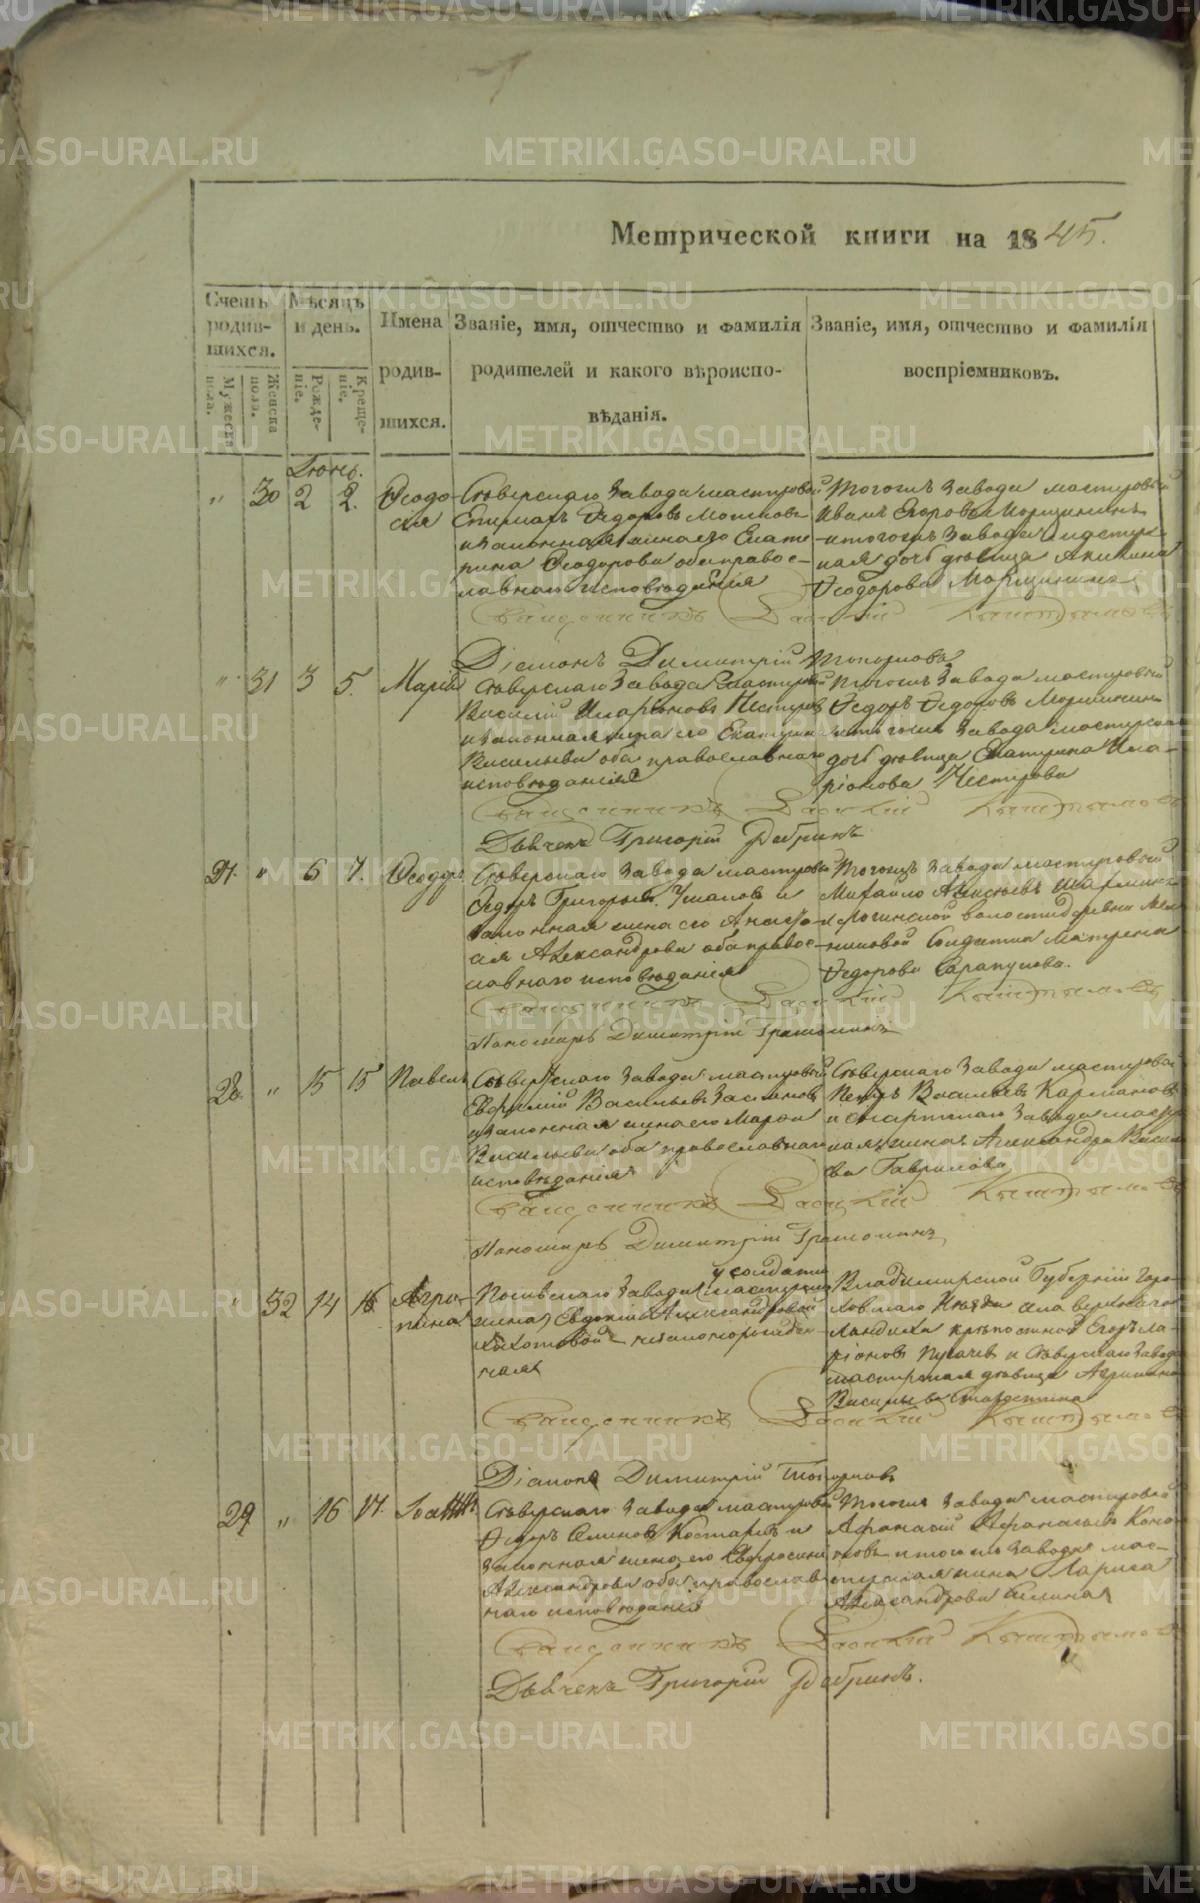 Метрической книги на 1845.
Счетъ родив-шихся.
Мужеска пола.
Женска пола.
Мѣсяцъ и день.
Рожде-ніе.
Креще-ніе.
Имена родив-шихся.
Званіе, имя, отчество и фамилія родителей и какого вѣроиспо-вѣданія.
Званіе, имя, отчество и фамилія воспріемниковъ.
Іюнь.
" 30 2 2. Ѳеодо-
сія
Сѣверскаго завода мастеровой
Ѳедоровъ
и законная жена его Екате-
рина Ѳеодорова оба правос-
лавнаго исповѣданія
Тогожъ завода мастеровый
Иванъ Егоровъ Моршининъ
и тогожъ завода мастерс-
кая дочь дѣвица Акилина
Ѳеодорова Моршинина
Священникъ Василій Кыштымовъ
Діаконъ Димитрій Топорковъ
" 31 3 5. Марія
Сѣверскаго завода мастеровый
Василій Иларіоновъ Нестеровъ
и законная жена его Екатерина
Васильева оба православнаго
исповѣданія
Тогожъ завода мастеровый
Ѳедоръ Ѳедоровъ Моршининъ
и тогожъ завода мастерская
дочь дѣвица Екатерина Ила-
ріонова Нестерова
Священникъ Василій Кыштымовъ
Дьячекъ Григорій Ребринъ
27. " 6 7. Ѳеодоръ
Сѣверскаго завода мастеровый
Ѳедоръ Григорьевъ Ушаковъ и
законная жена его Анаста-
сія Александрова оба правос-
лавнаго исповѣданія
Тогожъ завода мастеровой
Михайло Алексѣевъ
волости деревни
солдатка Матрена
Ѳедорова Сарапулова.
Священникъ Василій Кыштымовъ
Пономарь Димитрій Грамолинъ
28. " 15 15 Павелъ
Сѣверскаго завода мастеровый
Евфимій Васильевъ
и законная жена его Марѳа
Васильева оба православнаго
исповѣданія
Сѣверскаго завода мастеровой
Петръ Васильевъ
завода мастер-
кая жена Александра Василь-
ева Гаврилова
Священникъ Василій Кыштымовъ
Пономарь Димитрій Грамолинъ
" 32 14 16 Агри-
пина
у солдатки
завода
Евдокіи Александровой
незаконорожден-
ная
Владимирской Губерніи Горо-
села верхняго
Ландиха крѣпостной Егоръ Ла-
ріоновъ Пугачевъ и Сѣверскаго завода
мастерская дѣвица Агрипина
Васильева
Священникъ Василій Кыштымовъ
Діаконъ Димитрій Топорковъ
29 " 16 17. Іоаннъ
Сѣверскаго завода мастеровый
Ѳедоръ Семеновъ Костаревъ и
законная жена его Евфросинія
Александрова оба православ
наго исповѣданія
Тогожъ завода мастеровой
Афанасій Афанасьевъ Коно-
ковъ и тогожъ завода мас-
терская жена Лариса
Александрова
Священникъ Василій Кыштымовъ
Дьячекъ Григорій Ребринъ.
METRIKI.GASO-URAL.RU